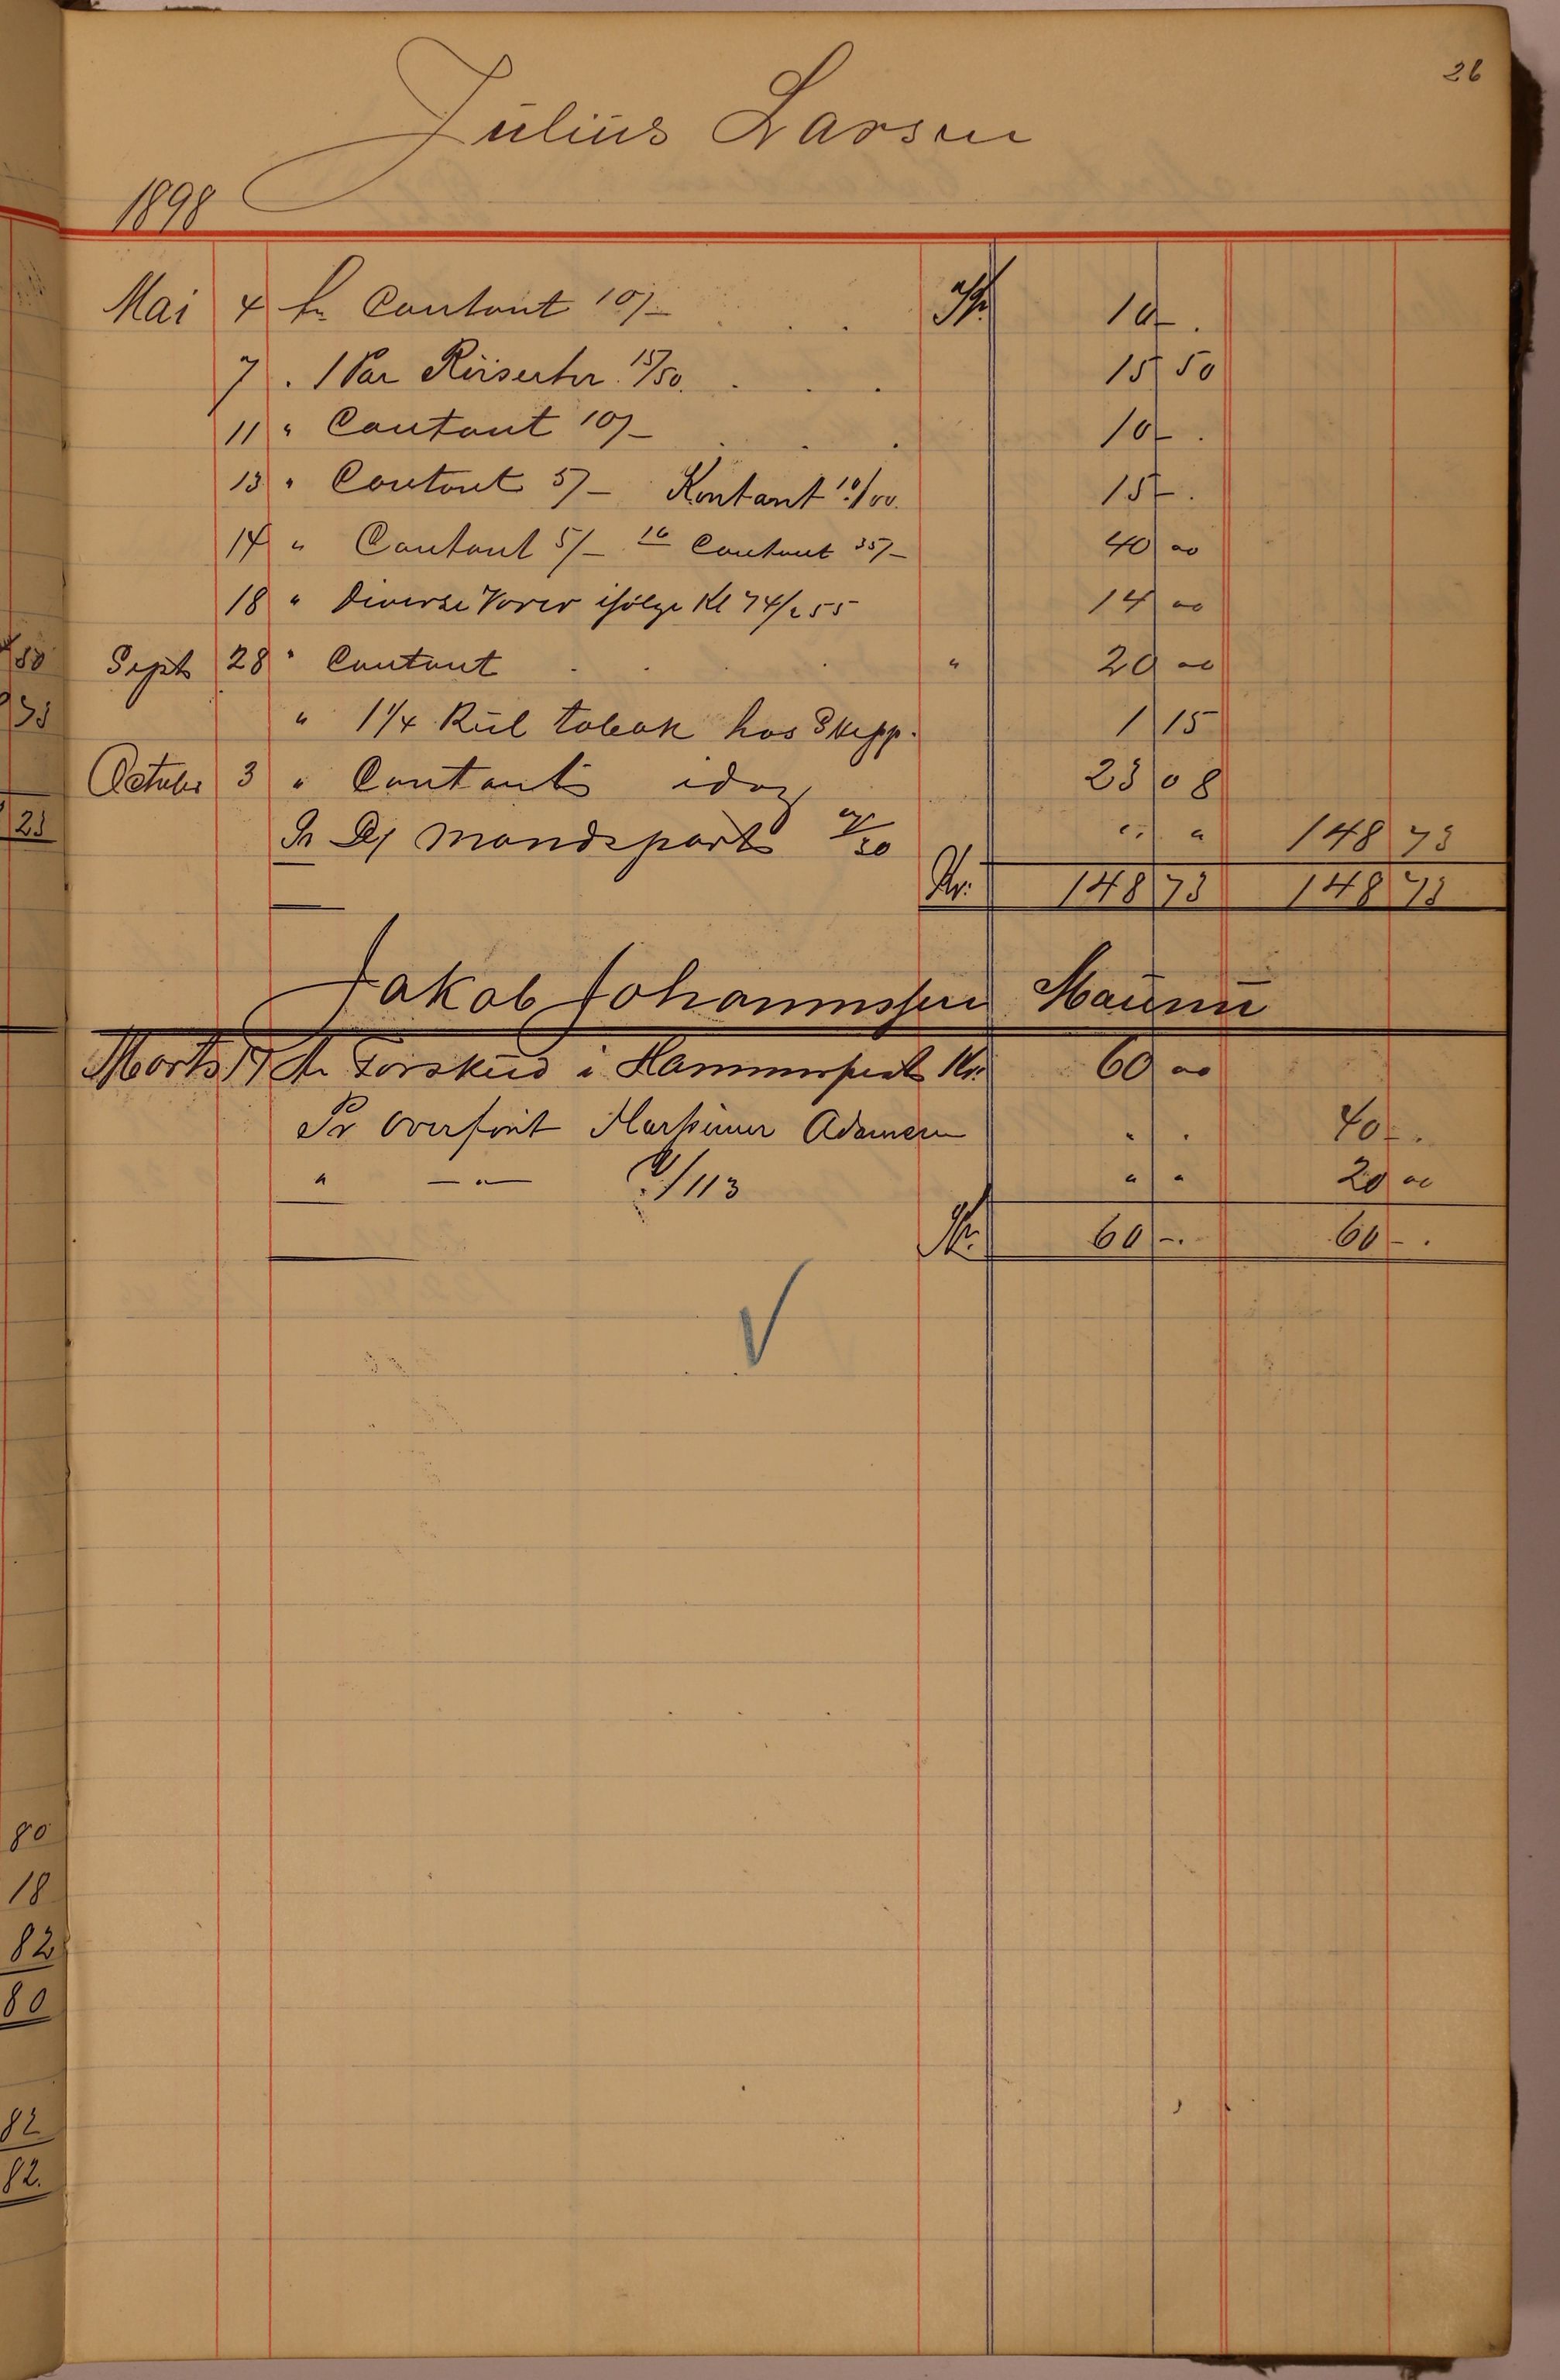 26
Julius Larsen
1898
Mai 4 An Contant 10/- Kr. 10 - .
7 . 1 Par Röiserter 15/50. 15 50
11 " Contant 10/- 10 - .
13 " Contant 5/- Kontant 10/00. 15 - .
14 " Contant 5/- 16 Contant 35/- 40 00
18 " Diverse Varer ifölge Kl 74/255 14 00
Sept 28 " Contant " 20 00
" 1 1/4 Rül tobak hos Skipp. 1 15
October 3 " Contant idag 23 08
Pr Dj Mandspart 30 " " 148 73
Kr. 148 73 148 73
Jakob Johannssen Maunu
Marts 17 An Forskud i Hammerfest Kr. 60 00
Pr Overfört Adamsen " . 40 - .
" - " - /113 " " 20 00
Kr. 60 - . 60 - .
50
73
23
80
18
82
80
82
82.